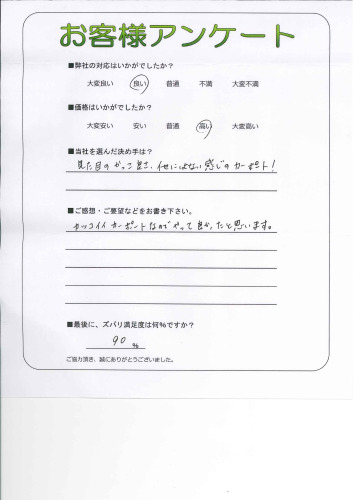 お客様アンケート
■弊社の対応はいかがでしたか？
大変良い 良い 普通 不満 大変不満
■価格はいかがでしたか？
大変安い 安い 普通 高い 大変高い
■当社を選んだ決め手は？
見た目のかっこ良さ、他にはない感じのカーポート！
■ご感想・ご要望などをお書き下さい。
カッコイイカーポートなのでやって良かったと思います。
■最後に、ズバリ満足度は何％ですか？
90 ％
ご協力頂き、誠にありがとうございました。